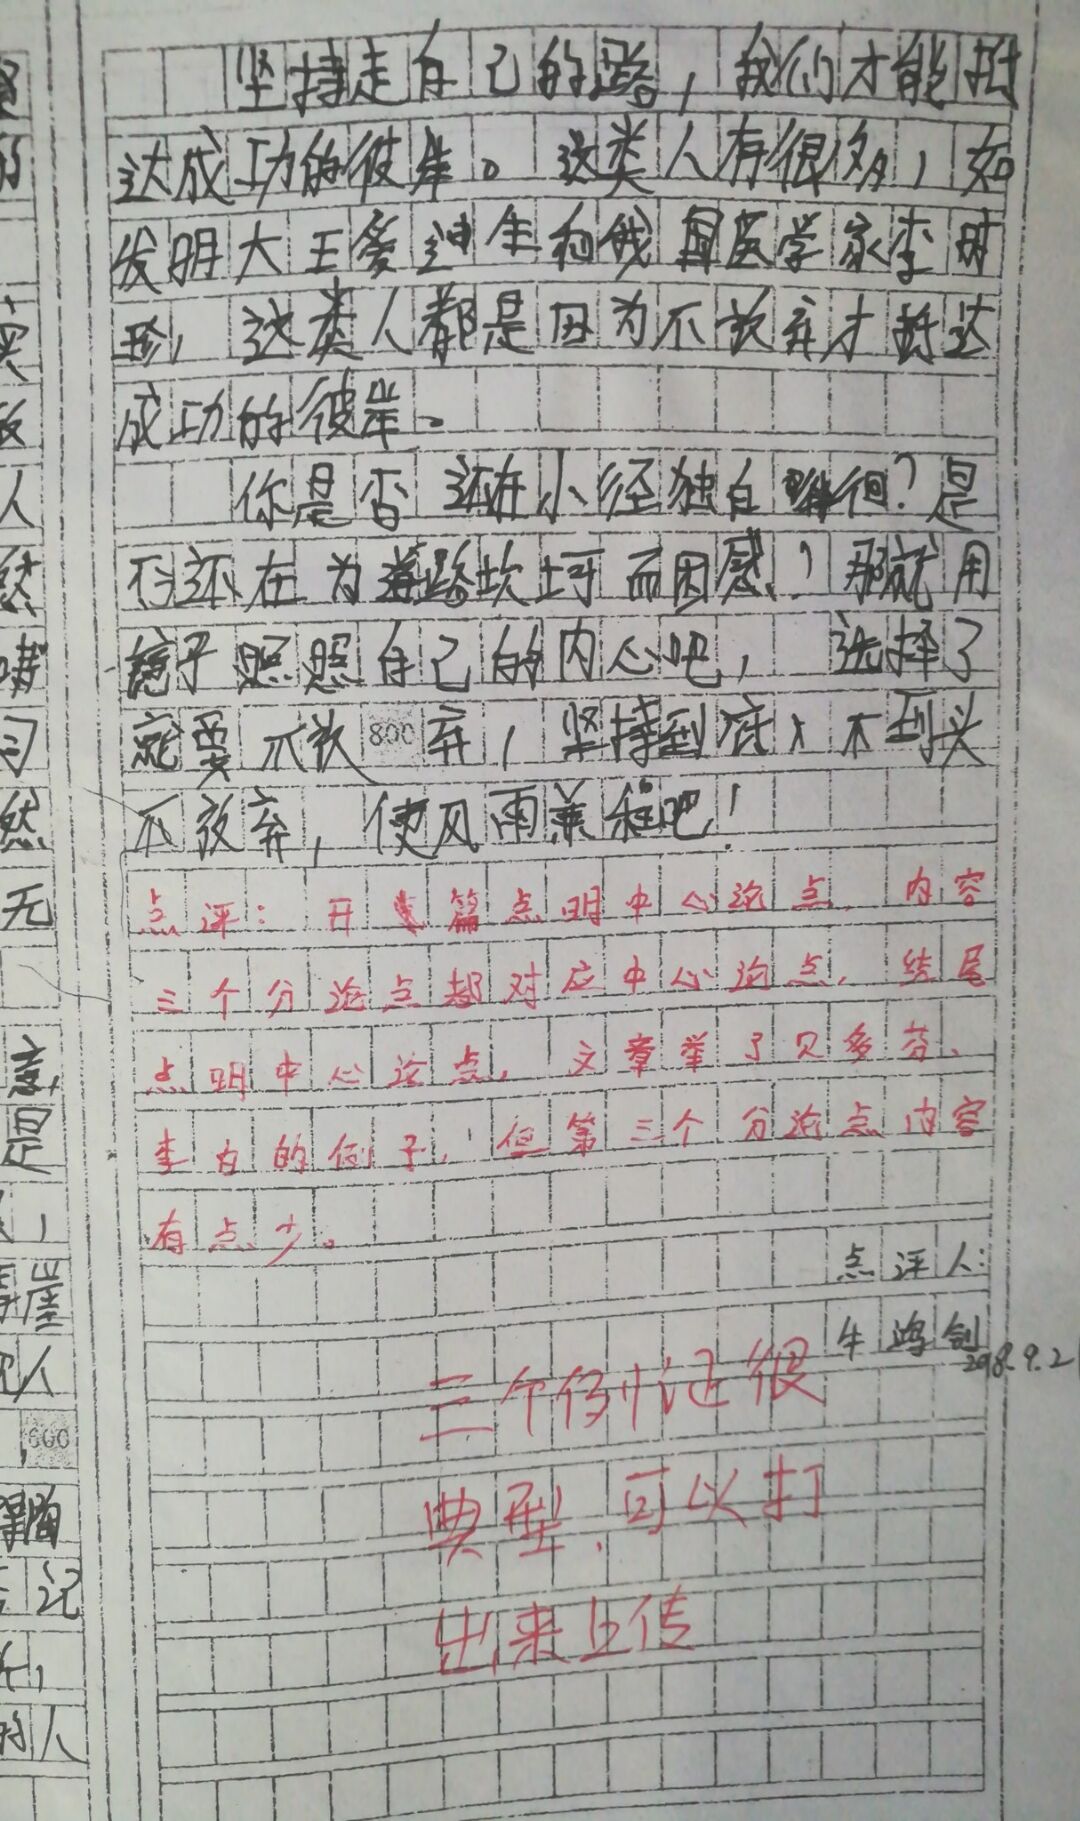 坚持走自己的路，我们才能抵
达成功的彼岸。这类人有很多，如
发明大王爱迪生和我国医学家李时
珍，这类人都是因为不放弃才抵达
成功的彼岸。
你是否还在小径独自徘徊？是
否还在为道路坎坷而困惑？那就用
镜子照照自己的内心吧，选择了
就要不放800弃，坚持到底，不到头
不放弃，使风雨兼程吧！
点评：开篇点明中心论点，内容
三个分论点都对应中心论点，结尾
点明中心论点，文章举了贝多芬、
李白的例子，但第三个分论点内容
有点少。
点评人：
牛鸿剑
2018.9.2
三个例证很
典型，可以打
出来上传
600